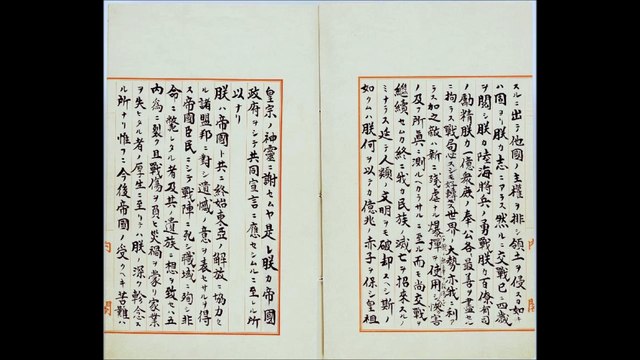 スルニ出テ他國ノ主權ヲ排シ領土ヲ侵スカ如キ
ハ固ヨリ朕カ志ニアラス然ルニ交戰已ニ四歳
ヲ閲シ朕カ陸海將兵ノ勇戰朕カ百僚有司
ノ勵精朕カ一億衆庶ノ奉公各最善ヲ盡セル
ニ拘ラス戰局必スシモ好轉セス世界ノ大勢亦我ニ利ア
ラス加之敵ハ新ニ殘虐ナル爆彈ヲ使用シ慘害
ノ及フ所眞ニ測ルヘカラサルニ至ル而モ尚交戰ヲ
繼續セムカ終ニ我カ民族ノ滅亡ヲ招來スルノ
ミナラス延テ人類ノ文明ヲモ破却スヘシ斯ノ
如クムハ朕何ヲ以テカ億兆ノ赤子ヲ保シ皇祖
内閣
皇宗ノ神靈ニ謝セムヤ是レ朕カ帝國
政府ヲシテ共同宣言ニ應セシムルニ至レル所
以ナリ
朕ハ帝國ト共ニ終始東亞ノ解放ニ協力セ
ル諸盟邦ニ對シ遺憾ノ意ヲ表セサルヲ得
ス帝國臣民ニシテ戰陣ニ死シ職域ニ殉シ非
命ニ斃レタル者及其ノ遺族ニ想ヲ致セハ五
内為ニ裂ク且戰傷ヲ負ヒ災禍ヲ蒙リ家業
ヲ失ヒタル者ノ厚生ニ至リテハ朕ノ深ク軫念ス
ル所ナリ惟フニ今後帝國ノ受クヘキ苦難ハ
内閣